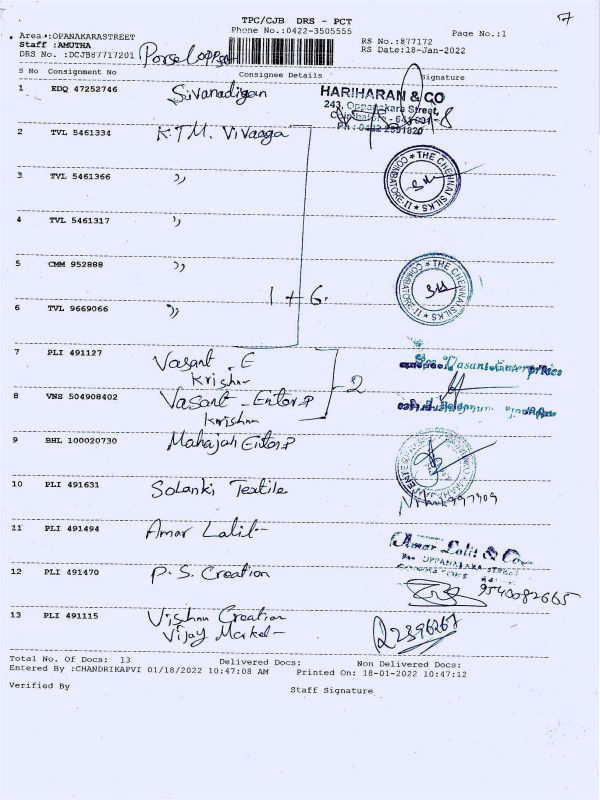 TPC/CJB DRS - PCT
Phone No.:0422-3505555
Page No.:1
Area :OPANAKARASTREET
RS No.:877172
Staff :AMUTHA
RS Date:18-Jan-2022
DRS No. :DCJB87717201
S No Consignment No Consignee Details Signature
1 EDQ 47252746 Sivanadigan
HARIHARAN & CO
243, Oppanakara Street,
Coimbatore - 641 001
2 TVL 5461334 K.T.M. Vivaaga
3 TVL 5461366 ,,
THE CHENNAI SILKS COIMBATORE-II
4 TVL 5461317 ,,
5 CMM 952888 ,,
1 + 6.
THE CHENNAI SILKS COIMBATORE-II
6 TVL 9669066 ,,
7 PLI 491127 Vasant - E
Krishna
2
8 VNS 504908402 Vasant - Enter.P
Krishna
9 BHL 100020730 Mahajan Enter.P
10 PLI 491631 Solanki Textile
11 PLI 491494 Amar Lalit
Amar Lalit & Co
OPPANAKARA STREET
12 PLI 491470 P.S. Creation
9540082665
13 PLI 491115 Vishnu Creation
Vijay Market
Total No. Of Docs: 13 Delivered Docs: Non Delivered Docs:
Entered By :CHANDRIKAPVI 01/18/2022 10:47:08 AM Printed On: 18-01-2022 10:47:12
Verified By Staff Signature